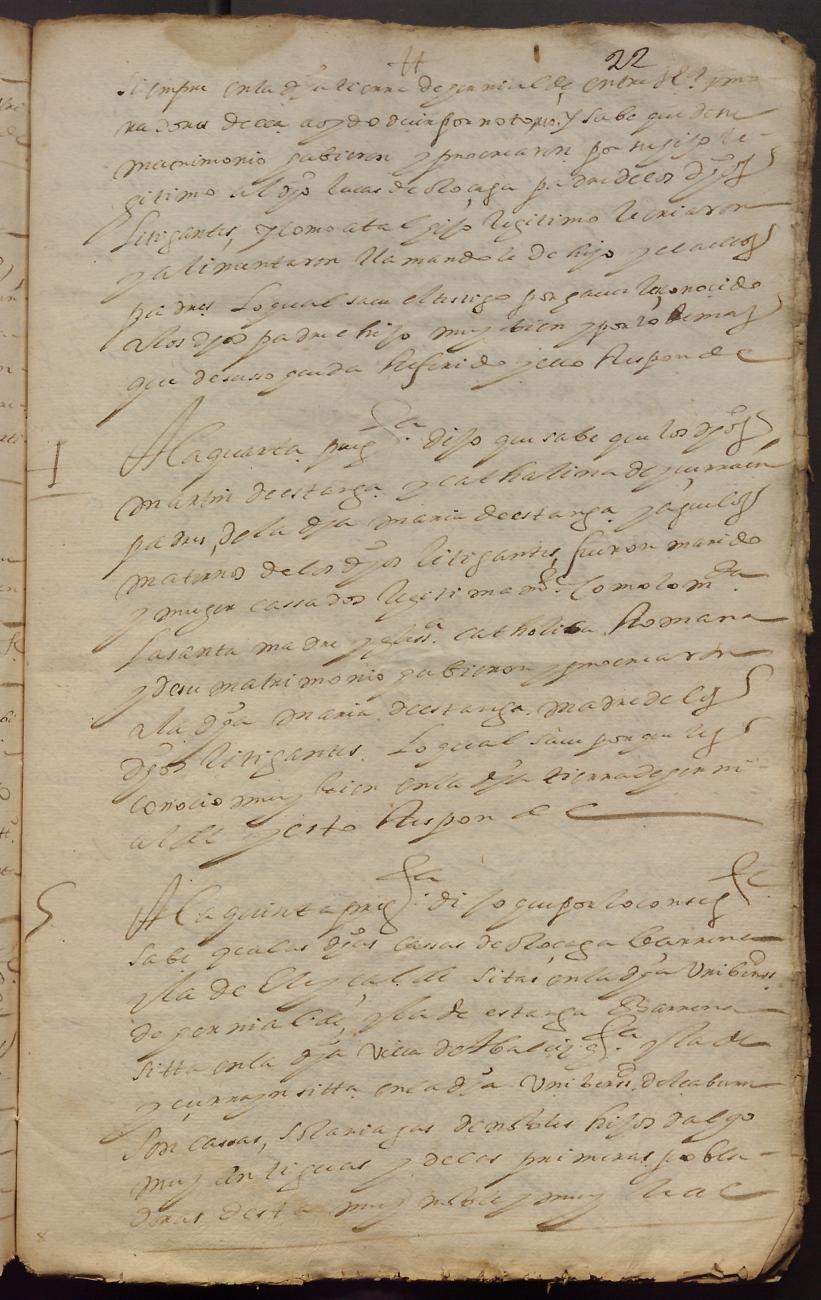 22
siempre en la dha tierra de hernialde, entre
radores de ella a oydo decir por notorio, y sabe que de su
matrimonio hubieron y procrearon por su hijo le-
gitimo al dho lucas de oloçaga padre de los dhos
litigantes, y como a tal hijo legitimo le criaron
y alimentaron llamandole de hijo y el a ellos
padres lo qual save el testigo por haver conocido
a los dhos padre e hijo muy bien y por lo demas
que de suso queda Referido y esto Responde
4
A la quarta preg.ta dijo que sabe que los dhos
martin de estanga y cathalina de yurrayn
padres de la dha maria de estanga y aguelos
maternos de los dhos litigantes, fueron marido
y muger cassados legitimam.te como lo m.da
la santa madre yglesia catholica Romana
y de su matrimonio hubieron y procrearon
a la dha maria de estanga madre de los
dhos litigantes. lo qual save por que les
conocio muy bien en la dha tierra de herni-
alde y esto Responde
5
A la quinta preg.ta dijo que por lo conseg.te
sabe que las dhas cassas de oloçaga Barrena
y la de Elizcalde sitas en la dha Unibersi.d
de hernialde, y la de estanga Barrena
sitta en la dha Villa de Albalcisq.ta y la de
yurrayn sitta en la dha Unibersi.d de leaburu
son cassas, solariegas de nobles hijos dalgo
muy antiguas y de las primeras pobla-
doras desta muy noble y muy leal